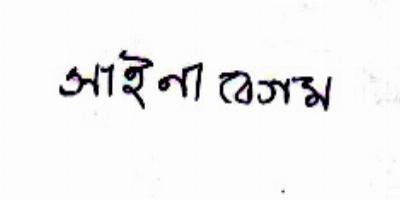 আইনা বেগম